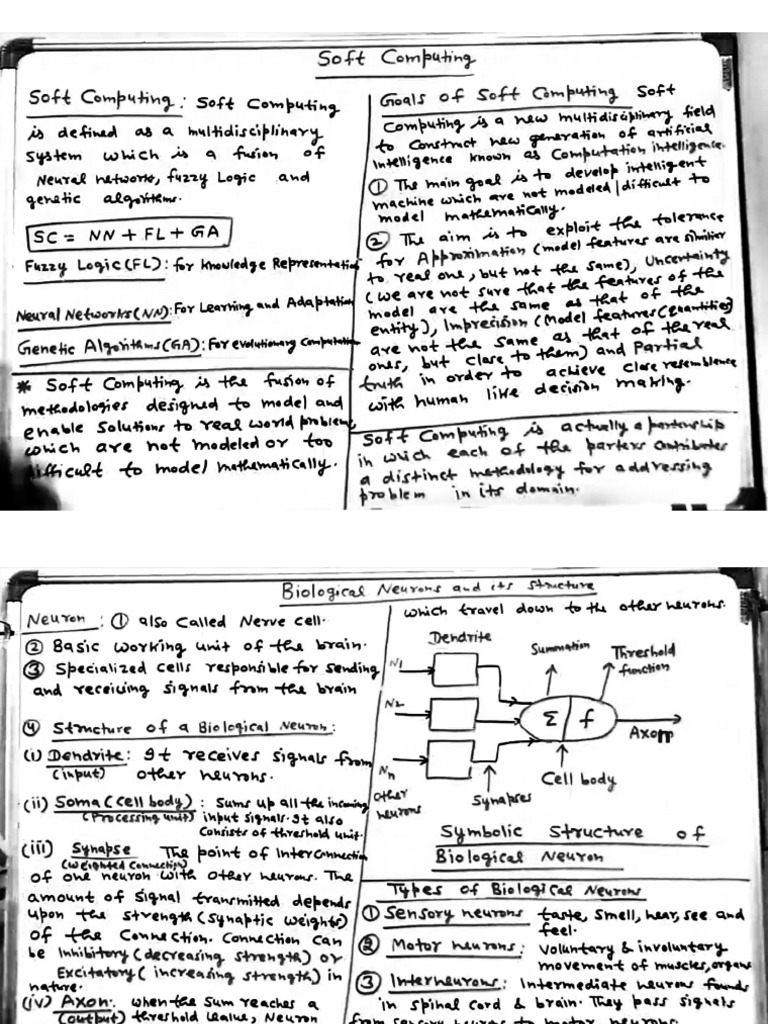 Soft Computing
Soft Computing : Soft Computing
is defined as a multidisciplinary
System which is a fusion of
Neural networks, fuzzy Logic and
genetic algorithms.
SC = NN + FL + GA
Fuzzy Logic (FL) : for Knowledge Representation
Neural Networks (NN) : For Learning and Adaptation
Genetic Algorithms (GA) : For evolutionary Computation
* Soft Computing is the fusion of
methodologies designed to model and
enable Solutions to real world problems
which are not modeled or too
difficult to model mathematically.
Goals of Soft Computing Soft
Computing is a new multidisciplinary field
to Construct new generation of artificial
Intelligence known as Computation intelligence.
① The main goal is to develop intelligent
machine which are not modeled / difficult to
model mathematically.
② The aim is to exploit the tolerance
for Approximation (model features are similier
to real one, but not the same), Uncertainty
(we are not sure that the features of the
model are the same as that of the
entity), Imprecision (Model features (quantities)
are not the same as that of the real
ones, but close to them) and Partial
truth in order to achieve close resemblence
with human like decision making.
Soft Computing is actually a partenship
in which each of the parters contributes
a distinct methodology for addressing
problem in its domain.
Biological Neurons and its structure
Neuron : ① also Called Nerve cell.
② Basic working unit of the brain.
③ Specialized cells responsible for sending
and receiving signals from the brain
④ Structure of a Biological Neuron :
(i) Dendrite : It receives signals from
(input) other neurons.
(ii) Soma (Cell body) : Sums up all the incoming
(Processing unit) input signals. It also
Consists of threshold unit.
(iii) Synapse The point of Interconnection
(Weighted Connection)
of one neuron with other neurons. The
amount of signal transmitted depends
upon the strength (Synaptic weights)
of the Connection. Connection can
be Inhibitory (decreasing strength) or
Excitatory (increasing strength) in
nature.
(iv) Axon : when the Sum reaches a
(output) threshold value, Neuron
which travel down to the other neurons.
Dendrite
Summation
Threshold
function
N1
N2
Nn
Σ f
Axon
other
neurons
Synapses
Cell body
Symbolic Structure of
Biological Neuron
Types of Biological Neurons
① Sensory neurons taste, Smell, hear, see and
feel.
② Motor neurons : Voluntary & involuntary
movement of muscles, organs
③ Interneurons : Intermediate neurons found
in spinal cord & brain. They pass signals
from sensory neurons to motor neurons.